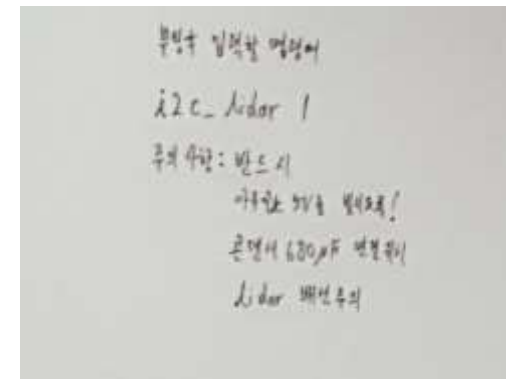 부팅후 입력할 명령어
i2c_lidar 1
주의사항: 반드시
5V를
콘덴서 680µF 연결
Lidar 배선주의